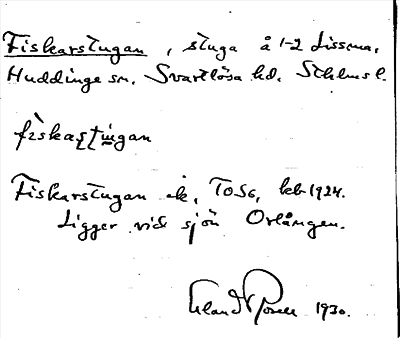 Fiskarstugan, stuga å 1-2 Lissma,
Huddinge sn. Svartlösa hd. Sthlms l.
Fiskarstugan ek, TO56, keb 1924.
Ligger vid sjön Orlången.
Erland Rosell 1930.